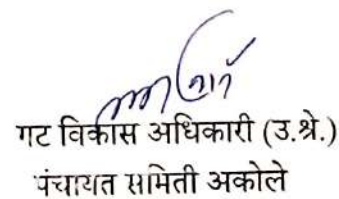 गट विकास अधिकारी (उ.श्रे.)
पंचायत समिती अकोले